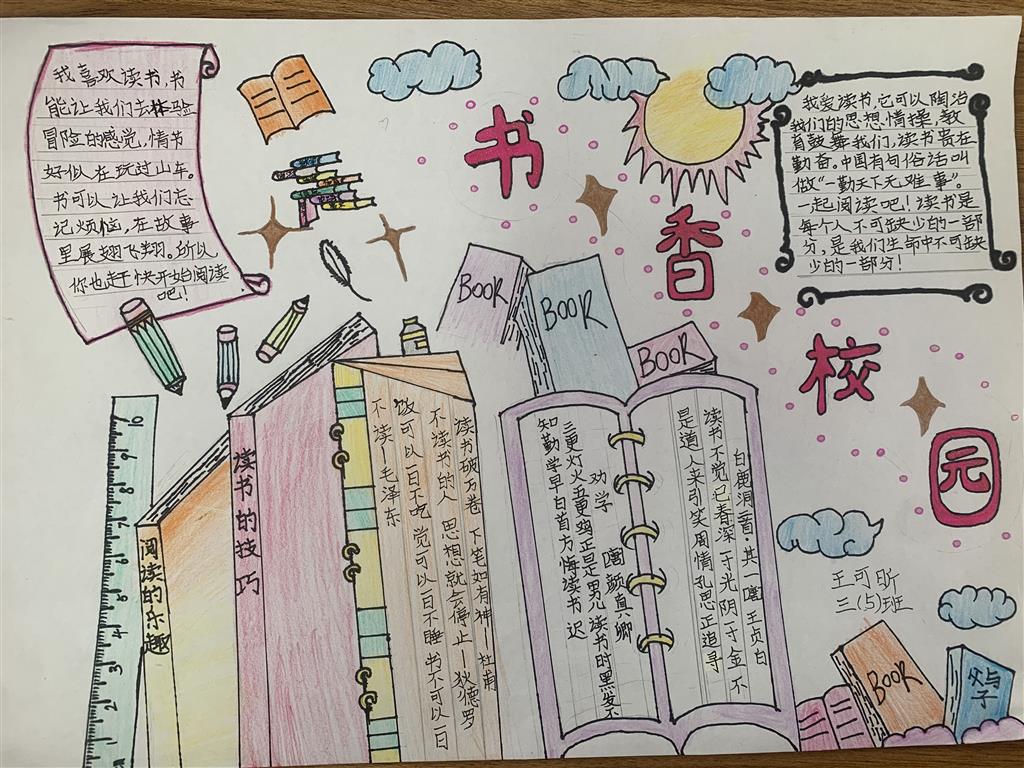 我喜欢读书,书
能让我们去体验
冒险的感觉,情节
好似在玩过山车。
书可以让我们忘
记烦恼,在故事
里展翅飞翔。所以
你也赶快开始阅读
吧!
书
香
校
园
我爱读书,它可以陶冶
我们的思想情操,教
育鼓舞我们,读书贵在
勤奋。中国有句俗话叫
做“一勤天下无难事”。
一起阅读吧!读书是
每个人不可缺少的一部
分,是我们生命中不可缺
少的一部分!
BOOK
BOOK
BOOK
阅读的乐趣
读书的技巧
读书破万卷 下笔如有神—杜甫
不读书的人 思想就会停止—狄德罗
饭可以一日不吃 觉可以一日不睡 书不可以一日
不读—毛泽东
劝学
唐 颜真卿
三更灯火五更鸡正是男儿读书时黑发不
知勤学早白首方悔读书迟
白鹿洞二首·其一 唐 王贞白
读书不觉已春深一寸光阴一寸金不
是道人来引笑周情孔思正追寻
王可昕
三(5)班
BOOK
父与子